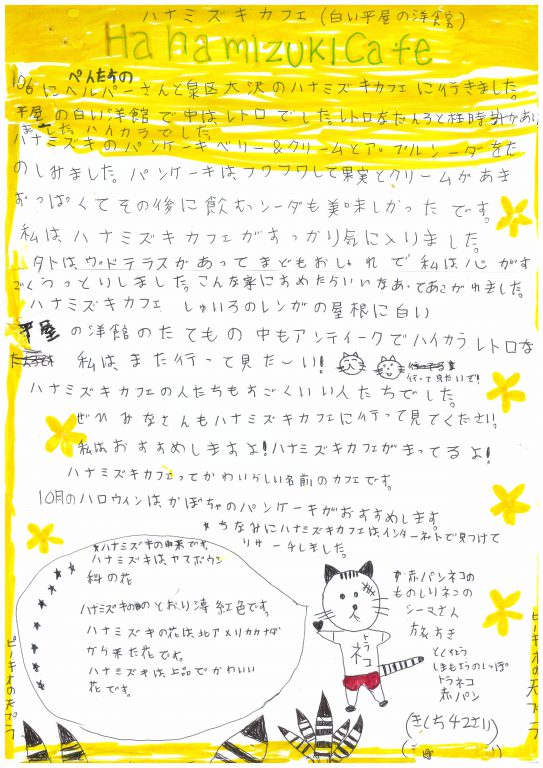 ハナミズキカフェ(白い平屋の洋館)
HanamizukiCafe
10/6にヘルパーさんと泉区大沢のハナミズキカフェに行きました。
平屋の白い洋館で中はレトロでした。レトロな
と柱時計があり
ました。ハイカラでした。
ハナミズキのパンケーキベリー&クリームとアップルシーダをた
のしみました。パンケーキは、フワフワして果実とクリームがあま
ずっぱくてその後に飲むシーダも美味しかったです。
私はハナミズキカフェがすっかり気に入りました。
外はウッドテラスがあってまどもおしゃれで私は心がす
ごくうっとりしました。こんな家にすめたらいいなあってあこがれました。
ハナミズキカフェ しゅいろのレンガの屋根に白い
平屋の洋館のたてもの中もアンティークでハイカラレトロな
私はまた行って見た~い!
行って見たいで!
ハナミズキカフェの人たちもすごくいい人たちでした。
ぜひみなさんもハナミズキカフェに行って見てください。
私はおすすめしますよ!ハナミズキカフェがまってるよ!
ハナミズキカフェってかわいらしい名前のカフェです。
10月のハロウィンはかぼちゃのパンケーキがおすすめします。
ちなみにハナミズキカフェはインターネットで見つけて
リサーチしました。
ハナミズキの由来です。
ハナミズキはヤマボウシ
科の花
ハナミズキのとおり薄紅色です。
ハナミズキの花は北アメリカカナダ
から来た花です。
ハナミズキは上品でかわいい
花です。
トラコ
ネ
赤パンネコの
ものしりネコの
シーマさん
旅好き
とくちょう
しまもようのしっぽ
トラネコ
赤パン
(きくち42さい)
ピーキオの天プラ
ピーキオの天プラ